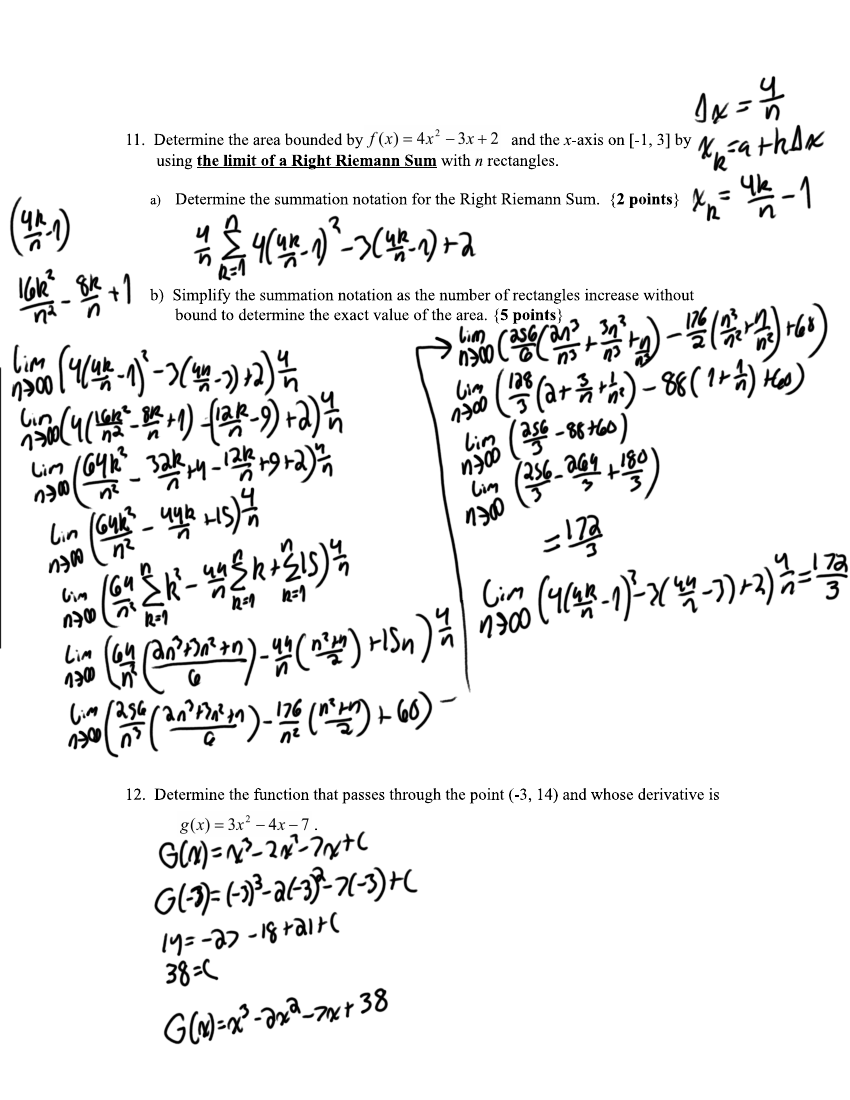 Δx = 4/n
11. Determine the area bounded by f(x) = 4x² − 3x + 2 and the x-axis on [-1, 3] by
using the limit of a Right Riemann Sum with n rectangles.
x_k = a + kΔx
a) Determine the summation notation for the Right Riemann Sum. {2 points}
x_k = 4k/n − 1
(4k/n − 1)
4/n Σ_{k=1}^{n} 4(4k/n − 1)² − 3(4k/n − 1) + 2
16k²/n² − 8k/n + 1
b) Simplify the summation notation as the number of rectangles increase without
bound to determine the exact value of the area. {5 points}
lim n→∞ (4(4k/n − 1)² − 3(4k/n − 3) + 2) 4/n
lim n→∞ (4(16k²/n² − 8k/n + 1) − (12k/n − 9) + 2) 4/n
lim n→∞ (64k²/n² − 32k/n + 4 − 12k/n + 9 + 2) 4/n
lim n→∞ (64k²/n² − 44k/n + 15) 4/n
lim n→∞ (64/n² Σ_{k=1}^{n} k² − 44/n Σ_{k=1}^{n} k + Σ_{k=1}^{n} 15) 4/n
lim n→∞ (64/n² ((2n³+3n²+n)/6) − 44/n ((n²+n)/2) + 15n) 4/n
lim n→∞ (256/n³ ((2n³+3n²+n)/6) − 176/n² ((n²+n)/2) + 60)
→ lim n→∞ (256/6 (2n³/n³ + 3n²/n³ + n/n³) − 176/2 (n²/n² + n/n²) + 60)
lim n→∞ (128/3 (2 + 3/n + 1/n²) − 88(1 + 1/n) + 60)
lim n→∞ (256/3 − 88 + 60)
lim n→∞ (256/3 − 264/3 + 180/3)
= 172/3
lim n→∞ (4(4k/n − 1)² − 3(4k/n − 3) + 2) 4/n = 172/3
12. Determine the function that passes through the point (-3, 14) and whose derivative is
g(x) = 3x² − 4x − 7 .
G(x) = x³ − 2x² − 7x + C
G(-3) = (-3)³ − 2(-3)² − 7(-3) + C
14 = −27 − 18 + 21 + C
38 = C
G(x) = x³ − 2x² − 7x + 38